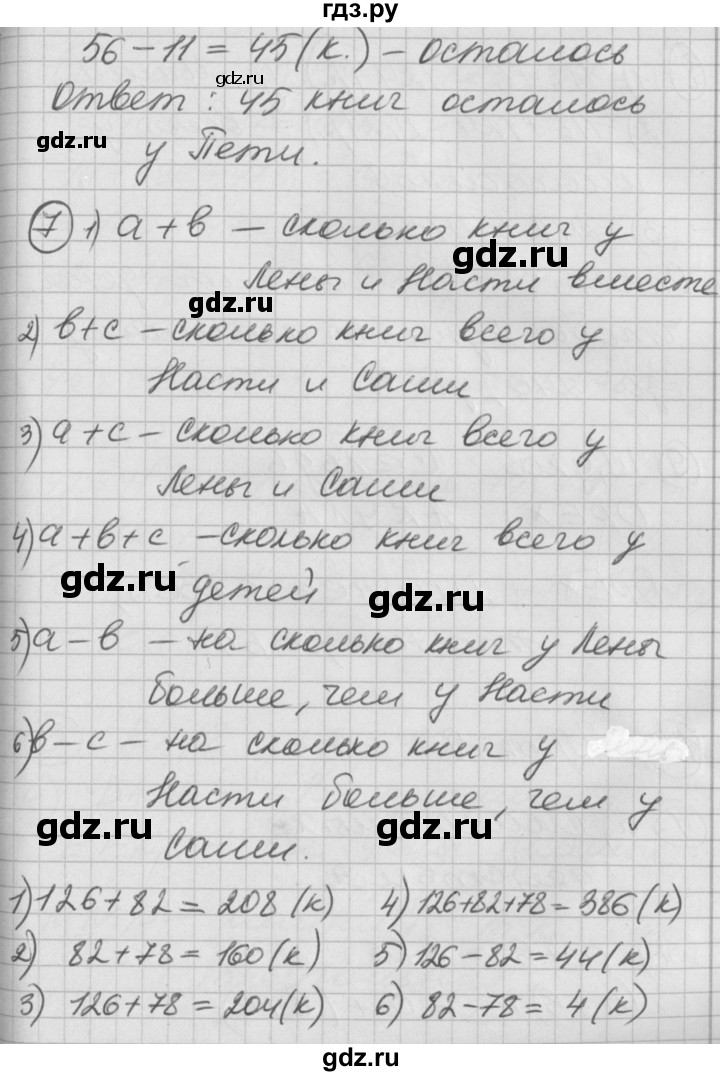 гдз.ру
56 - 11 = 45 (к.) - осталось
gdz.ru
Ответ: 45 книг осталось
gdz.ru
gdz.ru
у Пети.
7 1) a + в - сколько книг у
gdz.ru
Лены и Насти вместе
gdz.ru
2) в + с - сколько книг всего у
Насти и Саши
3) а + с - сколько книг всего у
Лены и Саши
4) а + в + с - сколько книг всего у
gdz.ru
детей
gdz.ru
5) а - в - на сколько книг у Лены
больше, чем у Насти
6) в - с - на сколько книг у
Насти больше, чем у
gdz.ru
gdz.ru
Саши.
1) 126 + 82 = 208 (к) 4) 126+82+78 = 386 (к)
2) 82 + 78 = 160 (к) 5) 126 - 82 = 44 (к)
3) 126 + 78 = 204 (к) 6) 82 - 78 = 4 (к)
gdz.ru